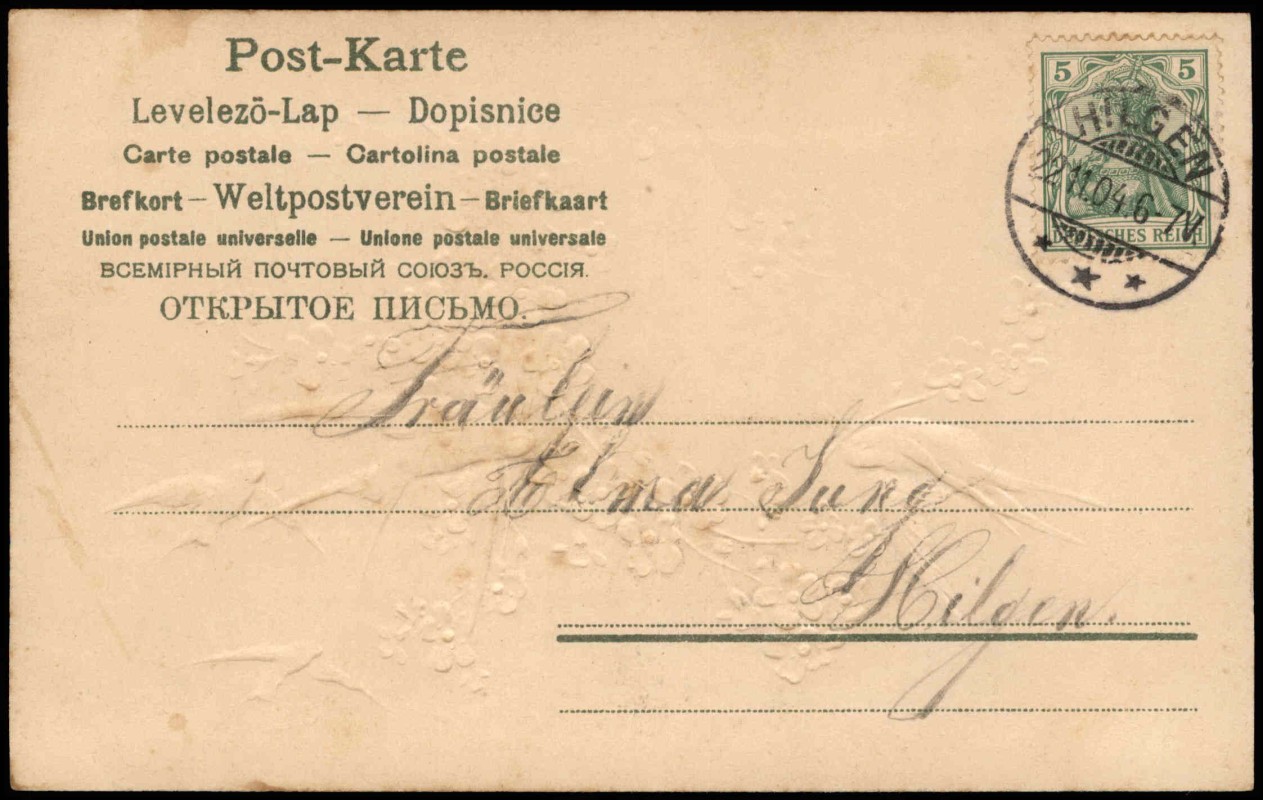 Post-Karte
Levelezö-Lap — Dopisnice
Carte postale — Cartolina postale
Brefkort – Weltpostverein – Briefkaart
Union postale universelle — Unione postale universale
ВСЕМІРНЫЙ ПОЧТОВЫЙ СОЮЗЪ. РОССІЯ.
ОТКРЫТОЕ ПИСЬМО.
5 5
HILGEN
22.11.04. 6-7N.
DEUTSCHES REICH
Fräulein
Elma Jung
Hilgen.